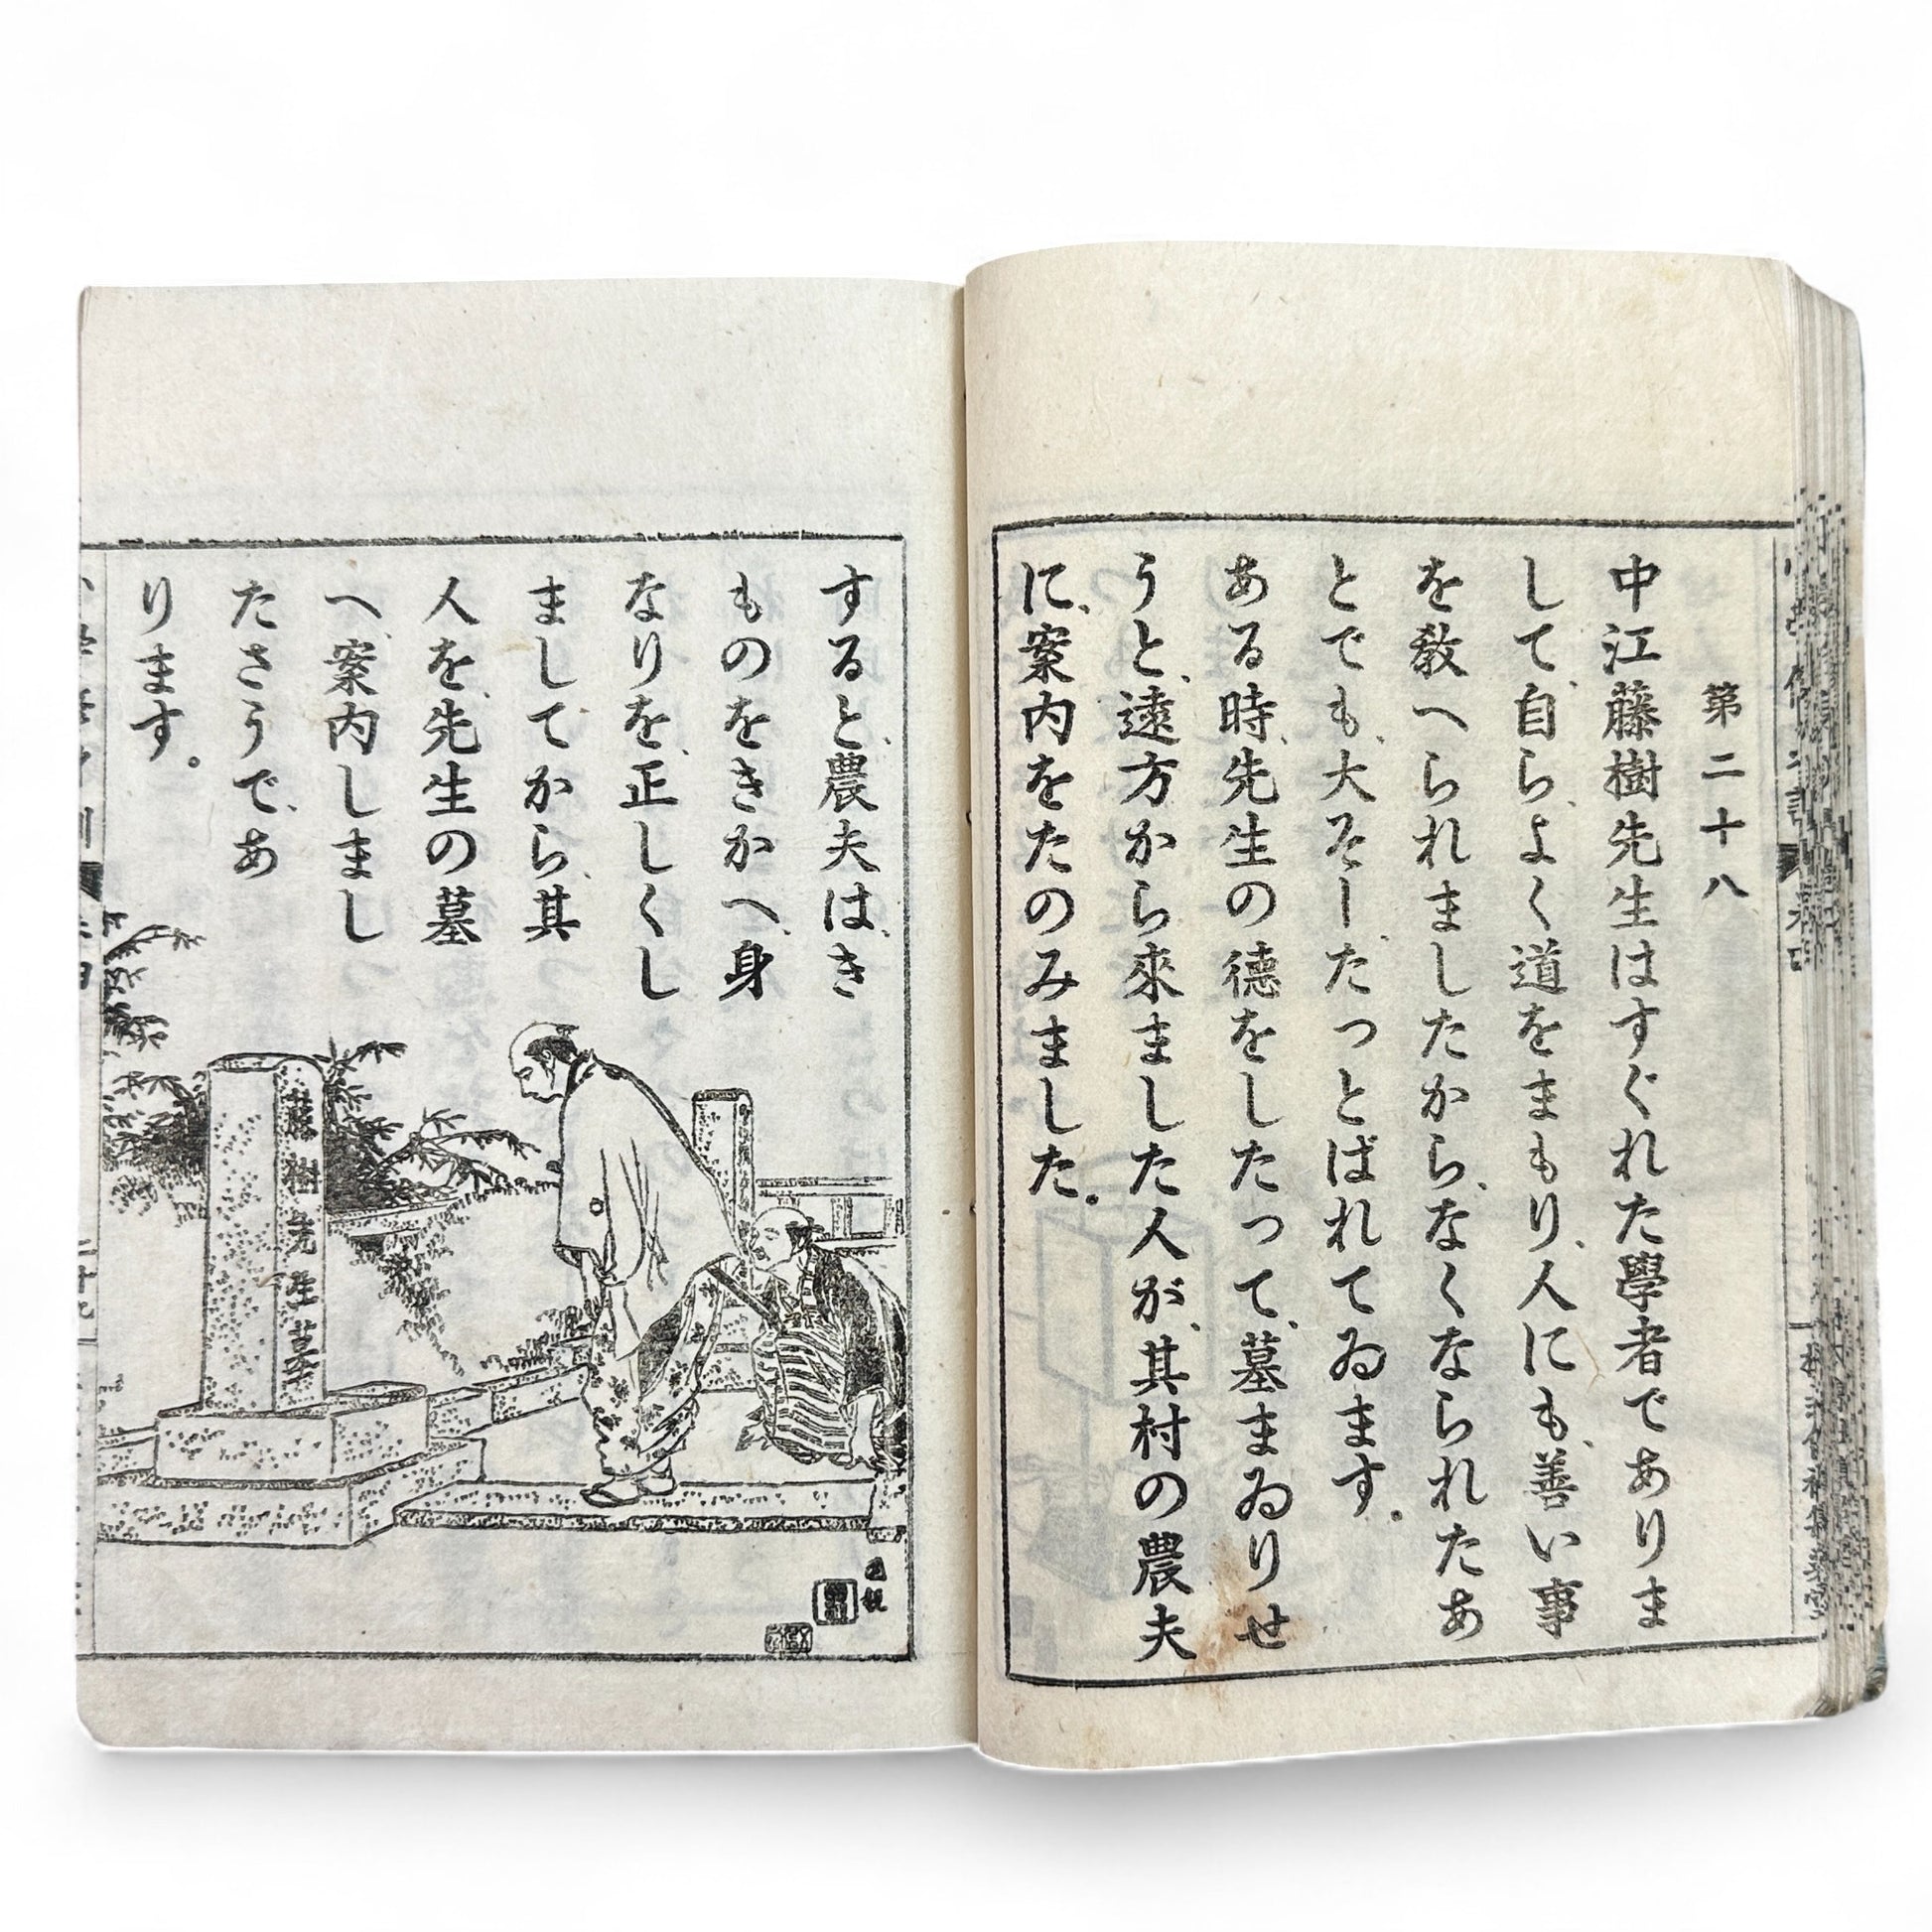 第二十八
中江藤樹先生はすぐれた學者でありま
して、自ら、よく道をまもり、人にも、善い事
を敎へられましたから、なくなられたあ
とでも、大そーたつとばれてゐます。
ある時、先生の德をしたつて、墓まゐりせ
うと、遠方から來ました人が、其村の農夫
に、案内をたのみました。
すると、農夫は、き
ものをきかへ、身
なりを、正しくし
ましてから、其
人を、先生の墓
へ、案内しまし
たさうで、あ
ります。
藤樹先生墓